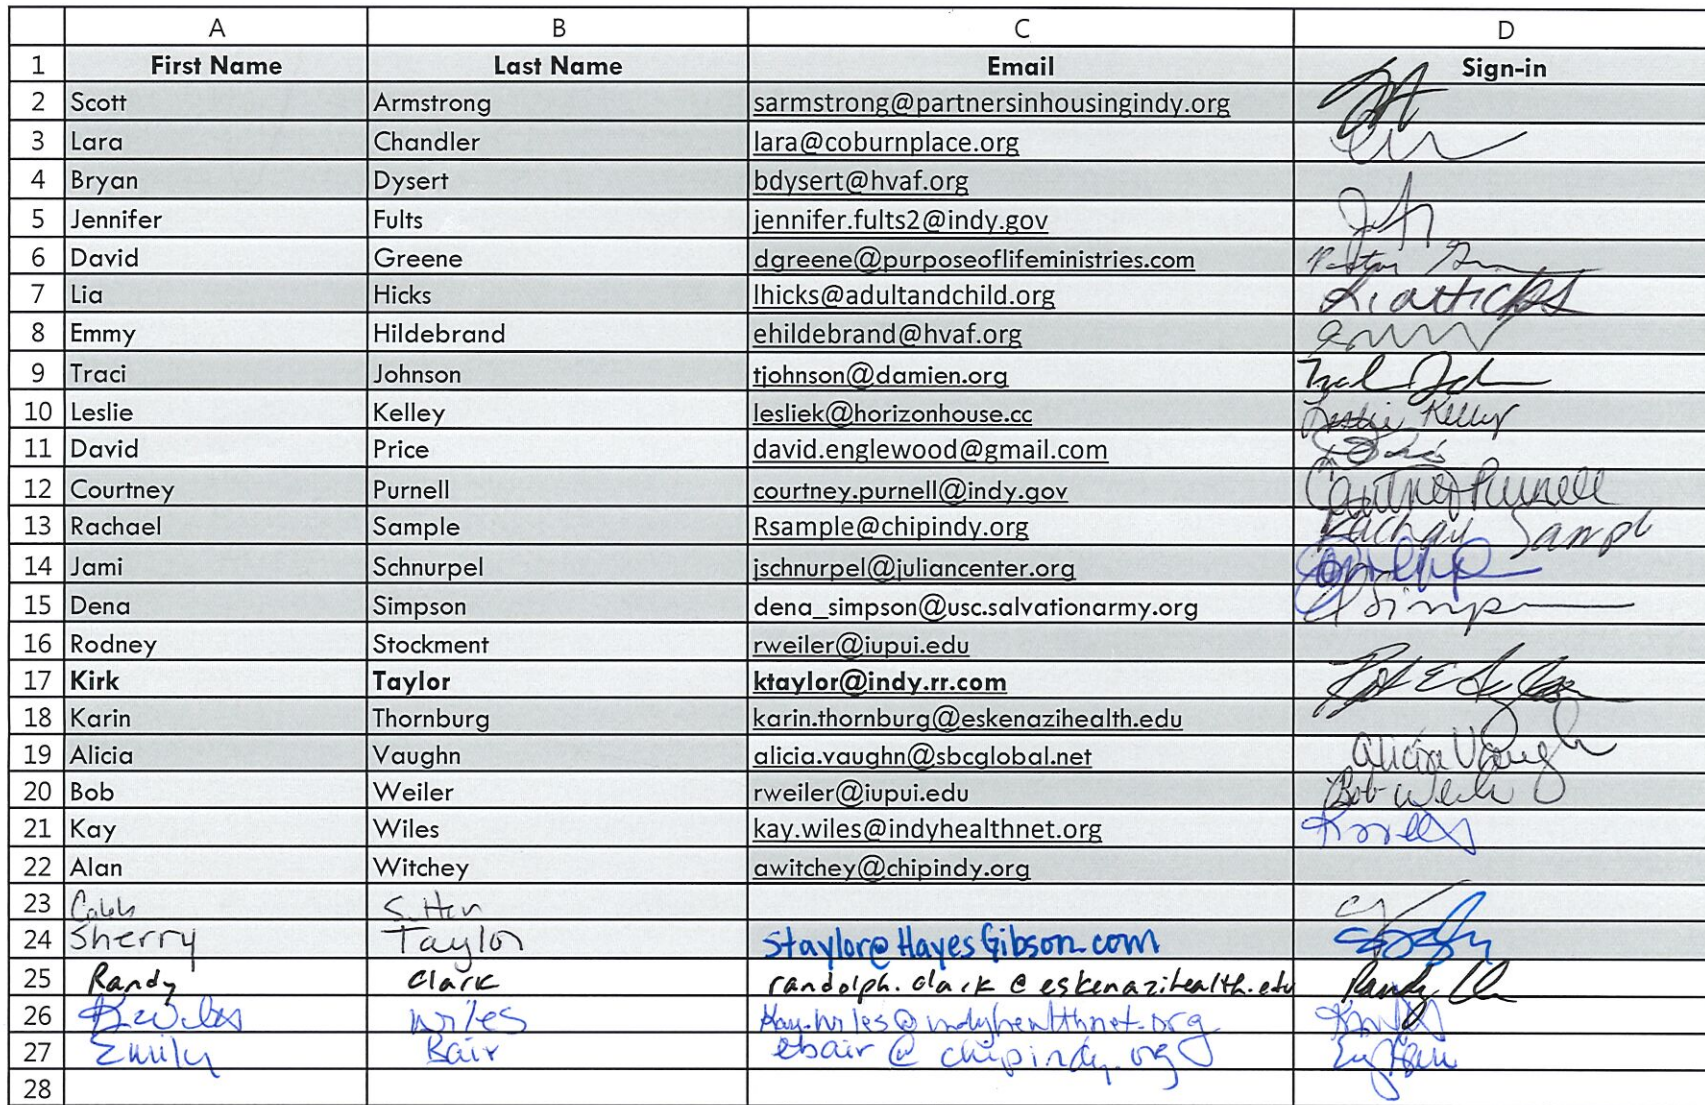 A B C D
1 First Name Last Name Email Sign-in
2 Scott Armstrong sarmstrong@partnersinhousingindy.org
3 Lara Chandler lara@coburnplace.org
4 Bryan Dysert bdysert@hvaf.org
5 Jennifer Fults jennifer.fults2@indy.gov
6 David Greene dgreene@purposeoflifeministries.com
7 Lia Hicks lhicks@adultandchild.org Lia Hicks
8 Emmy Hildebrand ehildebrand@hvaf.org
9 Traci Johnson tjohnson@damien.org
10 Leslie Kelley lesliek@horizonhouse.cc Leslie Kelley
11 David Price david.englewood@gmail.com
12 Courtney Purnell courtney.purnell@indy.gov Courtney Purnell
13 Rachael Sample Rsample@chipindy.org Rachael Sampl
14 Jami Schnurpel jschnurpel@juliancenter.org
15 Dena Simpson dena_simpson@usc.salvationarmy.org
16 Rodney Stockment rweiler@iupui.edu
17 Kirk Taylor ktaylor@indy.rr.com
18 Karin Thornburg karin.thornburg@eskenazihealth.edu
19 Alicia Vaughn alicia.vaughn@sbcglobal.net Alicia Vaugh
20 Bob Weiler rweiler@iupui.edu Bob Weiler
21 Kay Wiles kay.wiles@indyhealthnet.org
22 Alan Witchey awitchey@chipindy.org
23 Caleb Sutton
24 Sherry Taylor Staylor@HayesGibson.com
25 Randy Clark randolph.clark@eskenazihealth.edu Randy
26 Wiles Kay.wiles@indyhealthnet.org
27 Emily Bair ebair@chipindy.org
28